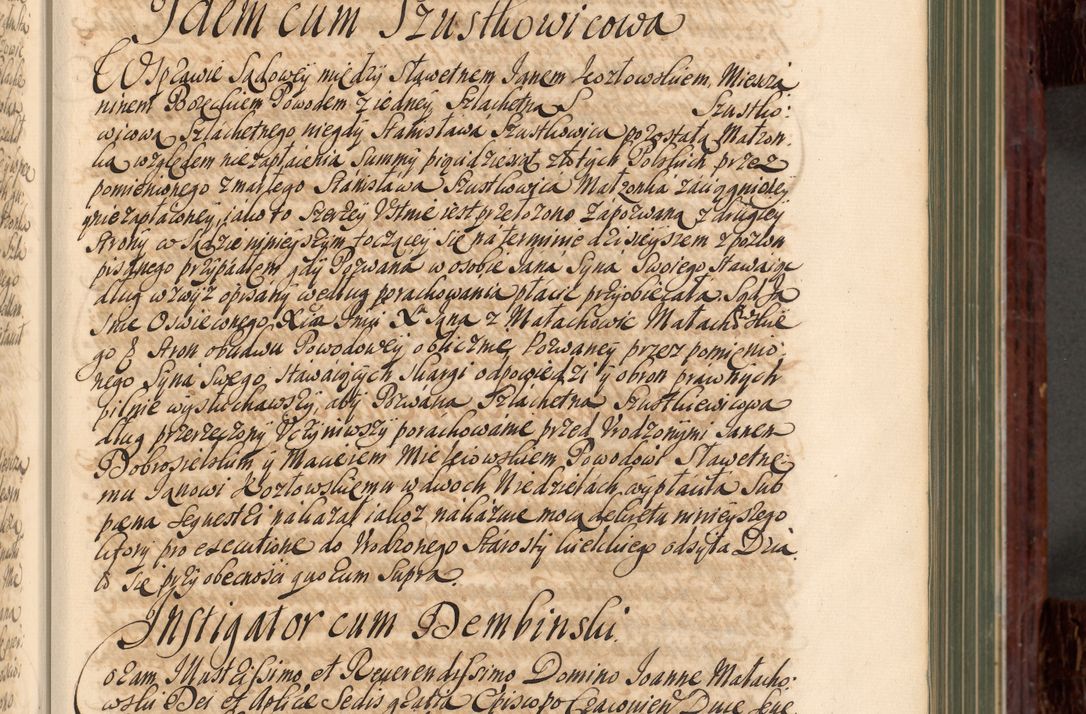 Idem cum Szustkowicowa
W Sprawie Sądowey między Sławetnem Janem Kozłowskiem, Miesza
ninem Bozeckiem Powodem z iedney, Szlachetną S Szustko:
wicową Szlachetnego niegdy Stanisława Szustkowica pozostałą Małzon
ką względem niezapłacenia Summy pięcidziesiąt złotych Polskich przez
pomienionego zmarłego Stanisława Szustkowica Małzonka zaciągnioney
y niezapłaconey, iako to Szerzey Ustnie iest przełozono Zapozwaną z drugiey
Strony w Sądzie ninieyszym toczącey się na terminie dzisieyszem z pozwu
pisanego przypadłem gdy Pozwana w osobie Jana Syna Swoiego stawaiąc
dług wzwyz opisany według porachowania płacic przyobiecała Sąd Ja
snie Oswieconego, Xcia Jmci Xa Jana z Małachowic Małach: Hue
go Stron obudwu Powodowey oblicznie Pozwaney przez pomienio
nego Syna Swego, stawaiących skargi odpowiedzi y obron prawnych
pilnie wysłuchawszy, aby Pozwana Szlachetna Szustkiewicowa
dług przerzeczony Uczyniwszy porachowanie przed Urodzonymi Janem
Dobrosielskim y Macieiem Mielecowskiem Powodowi Sławetne
mu Janowi Kozłowskiemu w dwoch Niedzielach, wypłaciła Sub
paena Sequestri nakazał iakoz nakazuie mocą dekretu ninieyszego
ktory pro executione do Urodzonego Starosty kieleckiego odsyła Dzia
ło się przy obecnosci quorum Supra.
Instigator cum Dembinski.
Coram Illustrissimo et Reuerendissimo Domino Joanne Małacho:
wski Dei et Aplicae Sedis gratia Episcopo Cracovien Duce Seue